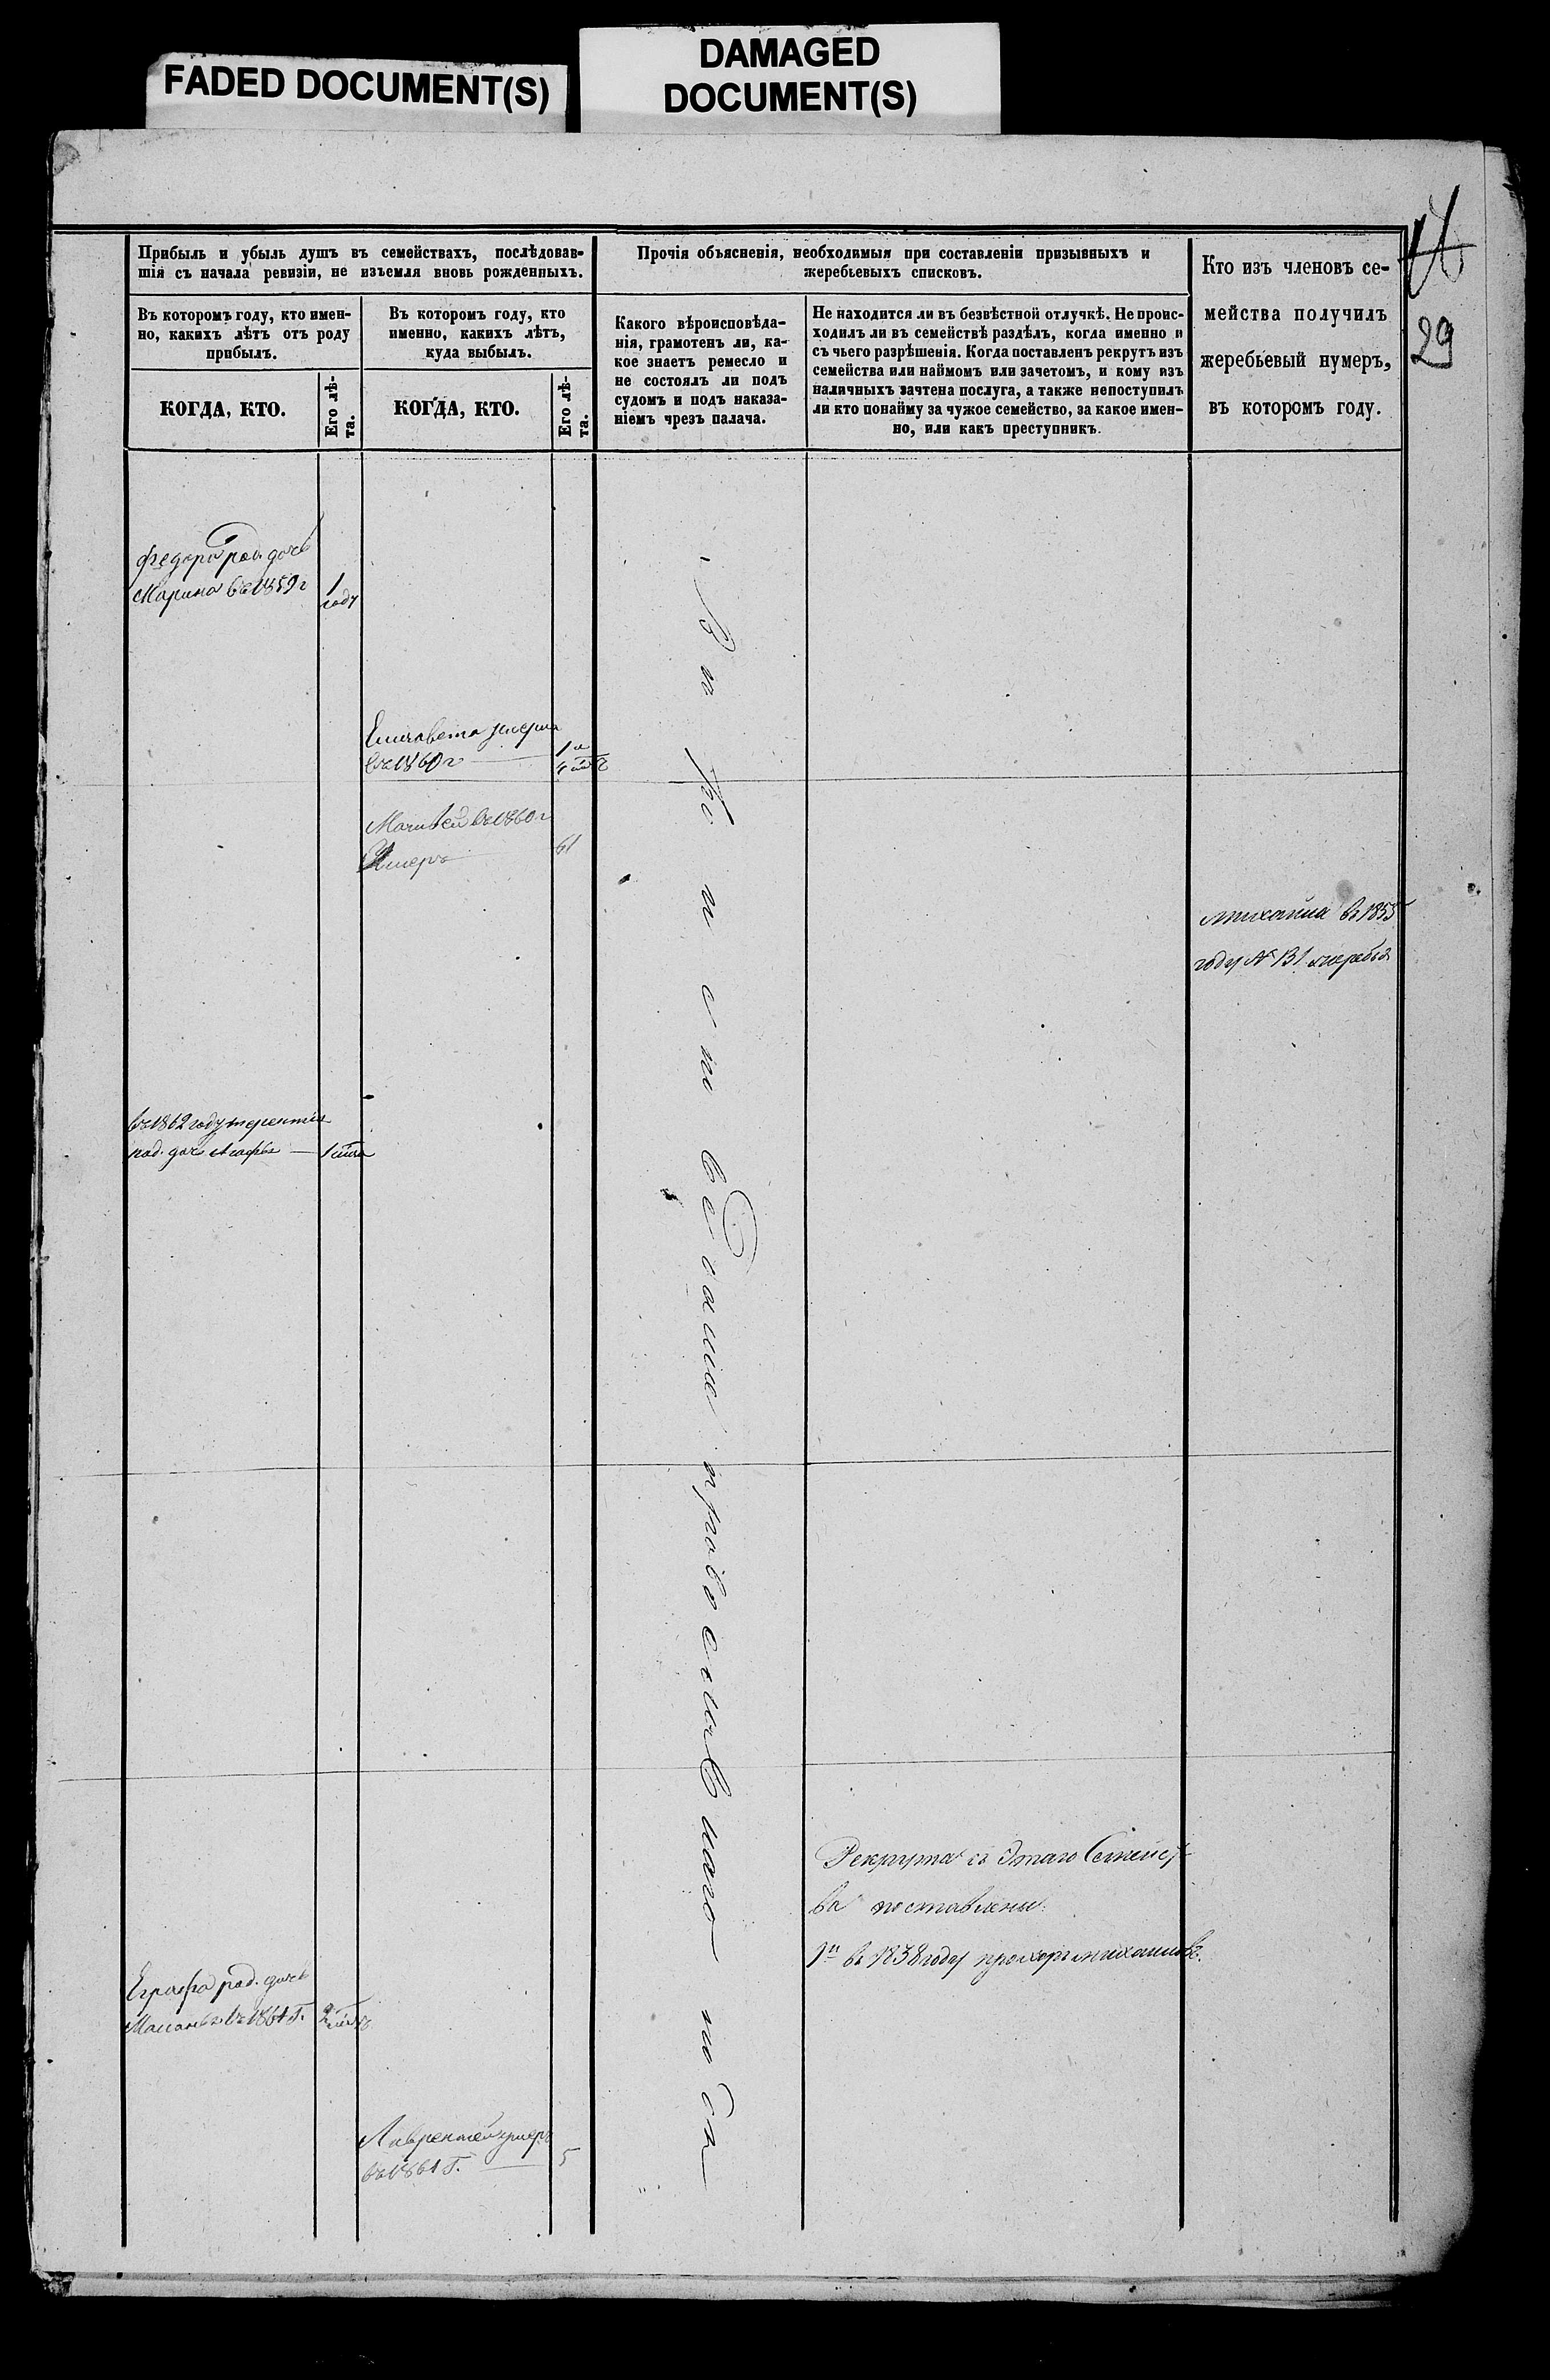 FADED DOCUMENT(S)
DAMAGED
DOCUMENT(S)
29
Прибыль и убыль душъ въ семействахъ, послѣдовав-
шія съ начала ревизіи, не изъемля вновь рожденныхъ.
Въ которомъ году, кто имен-
но, какихъ лѣтъ отъ роду
прибылъ.
КОГДА, КТО.
Его лѣ-
та.
Въ которомъ году, кто
именно, какихъ лѣтъ,
куда выбылъ.
КОГДА, КТО.
Его лѣ-
та.
Прочія объясненія, необходимыя при составленіи призывныхъ и
жеребьевыхъ списковъ.
Какого вѣроисповѣда-
нія, грамотенъ ли, ка-
кое знаетъ ремесло и
не состоялъ ли подъ
судомъ и подъ наказа-
ніемъ чрезъ палача.
Не находится ли въ безвѣстной отлучкѣ. Не проис-
ходилъ ли въ семействѣ раздѣлъ, когда именно и
съ чьего разрѣшенія. Когда поставленъ рекрутъ изъ
семейства или наймомъ или зачетомъ, и кому изъ
наличныхъ зачтена послуга, а также непоступилъ
ли кто понайму за чужое семейство, за какое имен-
но, или какъ преступникъ.
Кто изъ членовъ се-
мейства получилъ
жеребьевый нумеръ,
въ которомъ году.
федора род. дочь
Марина въ 1859 г
1
году
Елизавета умерла
въ 1860 г
Матвей въ 1860 г
Умеръ
61
михаила въ 1855
году № 131 жеребья
въ 1862 году терентия
род. дочь Агафья
Рекрута съ Этаго Семейст
ва поставлены:
1й въ 1838 году прохоръ михаиловъ.
род. дочь
въ 1861 Г.
2
Лаврентей умеръ
въ 1861 Г.
5
православнаго